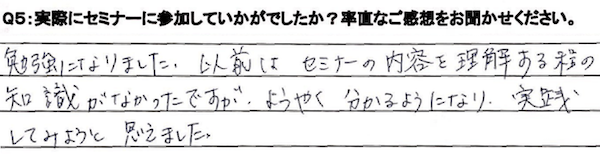 Q5：実際にセミナーに参加していかがでしたか？率直なご感想をお聞かせください。
勉強になりました。以前は セミナーの内容を理解する程の
知識がなかったですが、ようやく分かるようになり、実践
してみようと思えました。